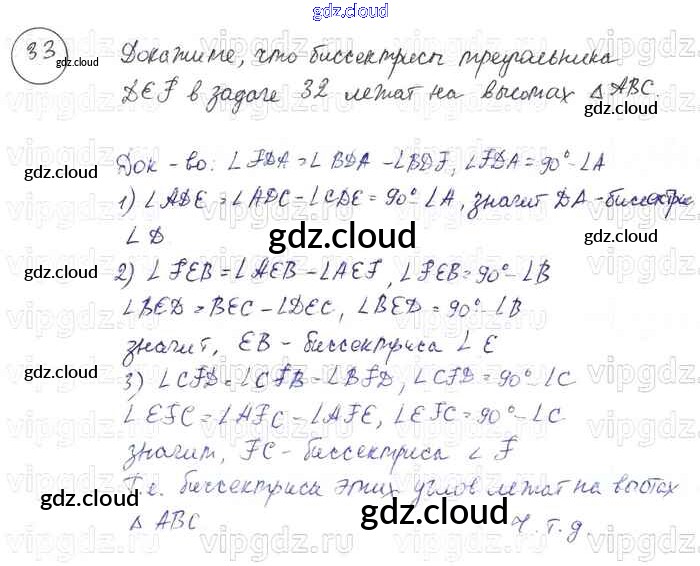 gdz.cloud
33 Докажите, что биссектрисы треугольника
gdz.cloud
DEF в задаче 32 лежат на высотах △ ABC.
gdz.cloud
Док-во: ∠FDA = ∠BDA - ∠BDF, ∠FDA = 90° - ∠A
1) ∠ADE = ∠ADC - ∠CDE = 90° - ∠A, значит DA - биссектрис
∠D
gdz.cloud
gdz.cloud
gdz.cloud
2) ∠FEB = ∠AEB - ∠AEF, ∠FEB = 90° - ∠B
∠BED = BEC - ∠DEC, ∠BED = 90° - ∠B
значит, EB - биссектриса ∠E
gdz.cloud
gdz.cloud
3) ∠CFD = ∠CFB - ∠BFD, ∠CFD = 90° - ∠C
∠EFC = ∠AFC - ∠AFE, ∠EFC = 90° - ∠C
значит, FC - биссектриса ∠F
Т.е. биссектриса этих углов лежат на высотах
gdz.cloud
gdz.cloud
△ ABC
ч.т.д
gdz.cloud